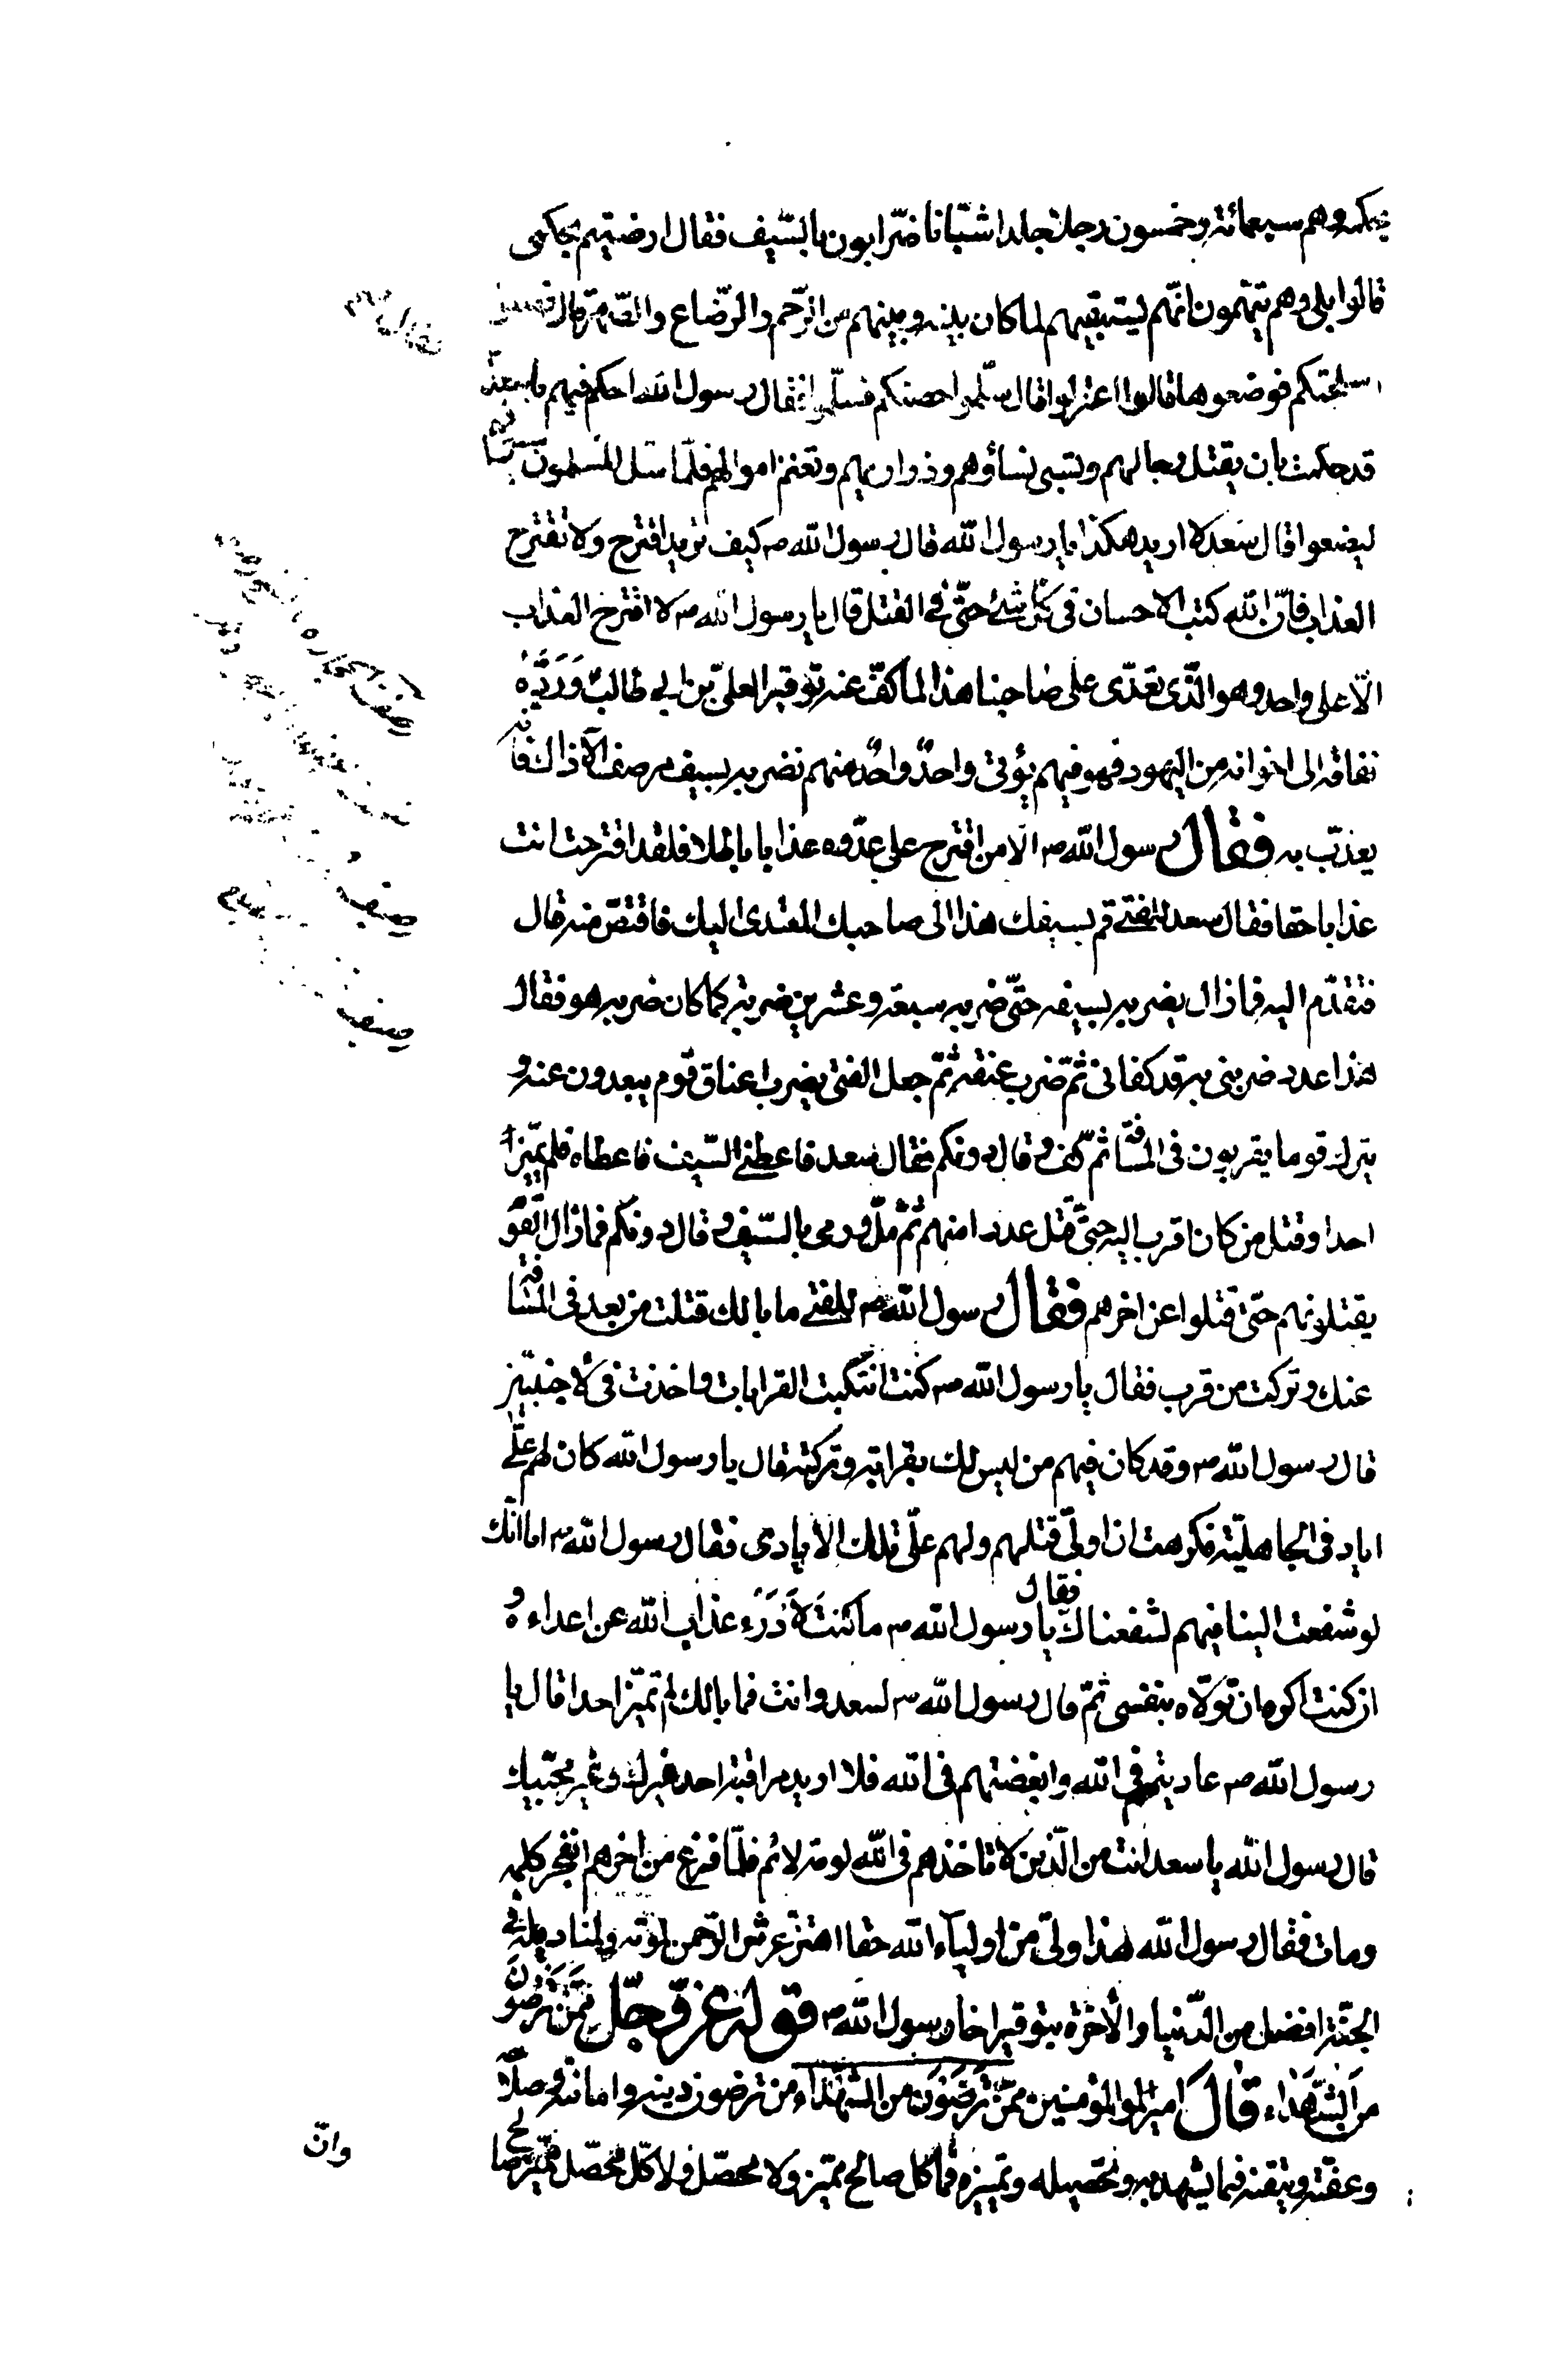 بحكمه وهم سبعمائة وخمسون رجلا جلدا شبّانا ضرّابون بالسّيف فقال ارضيتم بحكمى
قالوا بلى وهم يتهمون انّهم ليستبقيهم لما كان بينه وبينهم من الرّحم والرّضاع والصّهر قال فضعوا
اسلحتكم فوضعوها قال اعتزلوا فاعتزلوا قال سلّموا حصنكم فسلّموا فقال رسول الله احكم فيهم يا سعد
قد حكمت بان يقتل رجالهم وتسبى نساؤهم وذراريهم وتغنم اموالهم فلمّا سلّ المسلمون سيوفهم
ليضعوا قال سعد لا اريد هكذا يا رسول الله قال رسول الله ص كيف تريد اقترح ولا تقترح
العذاب فانّ الله كتب الاحسان فى كلّ شئ حتّى فى القتل قال يا رسول الله ص لا اقترح العذاب
الّا على واحد وهو الّذى تعدّى على صاحبنا هذا لما كفّ عنه توقيرا لعلىّ بن ابى طالب وَرَدَّهُ
نفاقه الى اخوانه من اليهود فهو فيهم يؤتى واحدٌ واحدٌ منهم نضربه بسيف مرهف الّا ذاك فانّه
يعذّب به فقال رسول الله ص الا من اقترح على عدّوه عذابا باطلا فلقد اقترحت انت
عذابا حقا فقال سعد للفتى قم بسيفك هذا الى صاحبك المعتدى اليك فاقتصّ منه قال
فتقدّم اليه فما زال يضربه بسيفه حتّى ضربه سبعة وعشرين ضربة كما كان ضربه هو فقال
هذا عدد ضربنى به قد كفانى ثمّ ضرب عنقه ثمّ جعل الفتى يضرب اعناق قوم يبعدون عنه و
يترك قوما يقربون فى المسافة ثمّ كفّ وقال دونكم فقال سعد فاعطنى السّيف فاعطاه فلم يميّز
احدا وقتل من كان اقرب اليه حتّى قتل عددا منهم ثمّ ملّ ورمى بالسّيف وقال دونكم فما زال القوم
يقتلونهم حتّى قتلوا عن اخرهم فقال رسول الله ص للفتى ما بالك قتلت من بعد فى المسافة
عنك وتركت من قرب فقال يا رسول الله ص كنت اتنكّبت القرابات واخذت فى الاجنبيّين
قال رسول الله ص وقد كان فيهم من ليس لك بقرابة وتركته قال يا رسول الله كان لهم علىّ
اياد فى الجاهليّة فكرهت ان اولّى قتلهم ولهم علىّ تلك الايادى فقال رسول الله ص اما انّك
لو شفعت الينا فيهم لشفعناك فقال يا رسول الله ص ما كنت لاَدرَء عذاب الله عن اعداءه و
ان كنت اكره ان اتولّاه بنفسى ثمّ قال رسول الله ص لسعد وانت فما بالك لم تميّز احدا قال يا
رسول الله ص عاديتهم فى الله وابغضتهم فى الله فلا اريد مراقبة احد غيرك وغير محبّيك
قال رسول الله يا سعد انت من الّذين لا تاخذهم فى الله لومة لائم فلمّا فرغ من اخرهم انفجر كلمه
ومات فقال رسول الله هذا ولىّ من اولياء الله حقا اهتزّ عرش الرّحمن لموته ولمناديله فى
الجنّة افضل من الدّنيا والاخرة بتوقير اخا رسول الله ص قوله عزّ وجلّ مِمَّن تَرضَونَ
مِنَ الشُّهَدَاء قال امير المؤمنين ممّن تَرضَونَ من الشّهداء من ترضون دينه وامانته وصلاحه
وعفّته وتيقّنه فيما يشهد به وتحصيله وتمييزه فما كلّ صالح مميّز ولا محصّل ولا كلّ محصّل مميّز صالح
وانّ